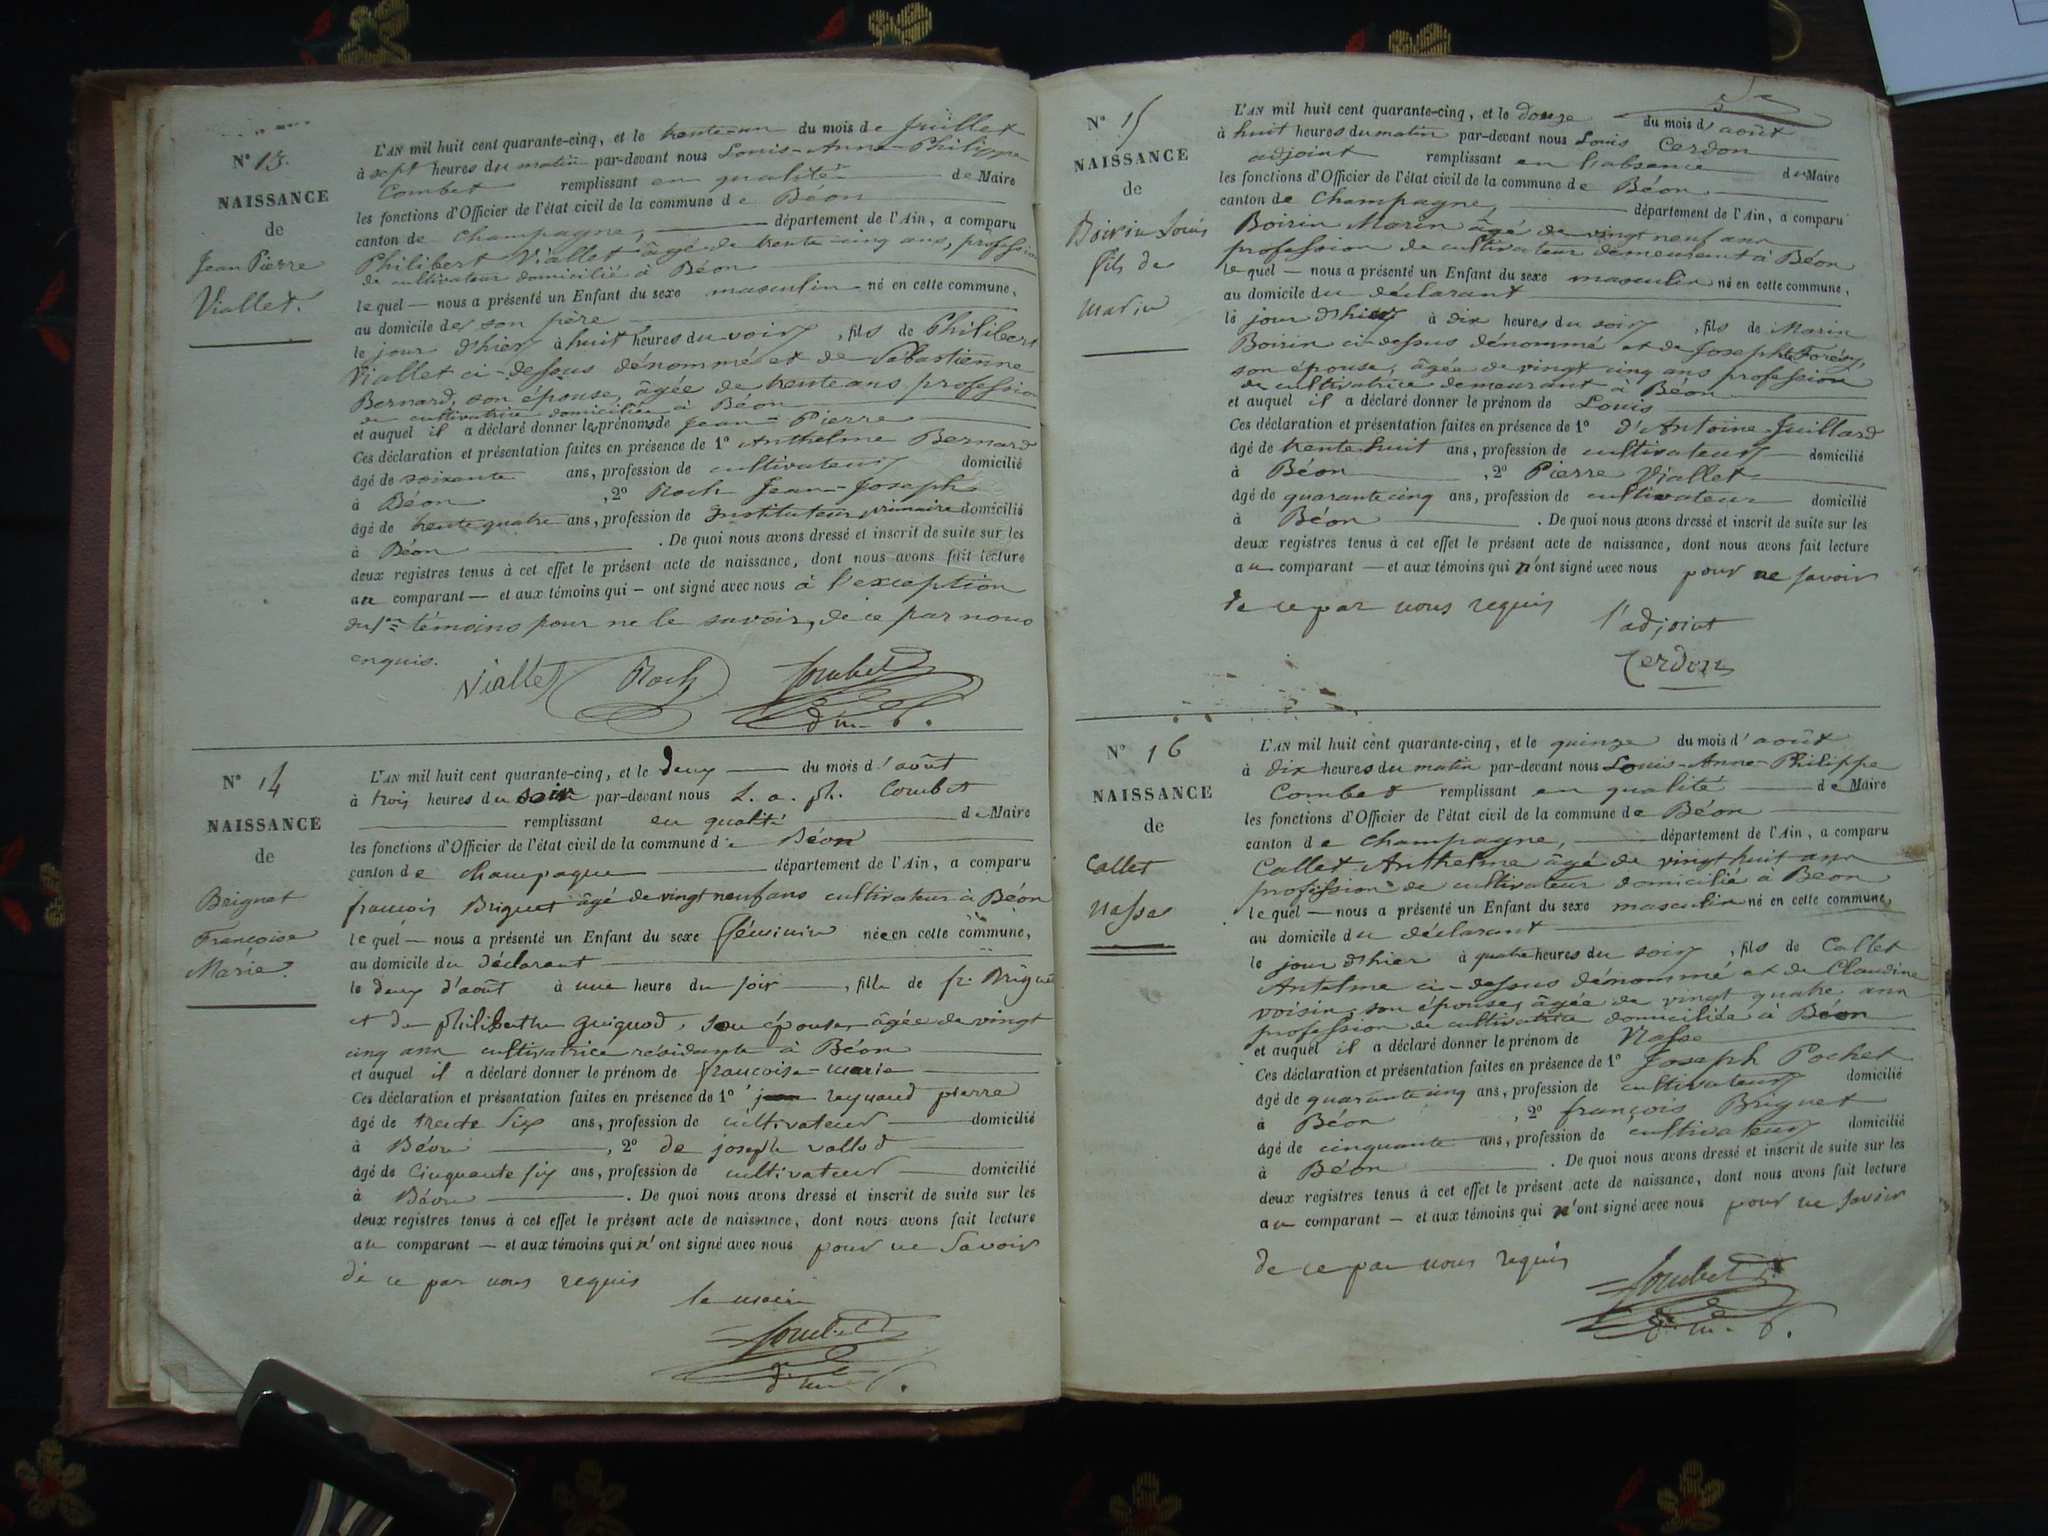 N° 13.
NAISSANCE
de
Jean Pierre
Viallet.
L'AN mil huit cent quarante-cinq, et le trente-un du mois de Juillet
à sept heures du matin par-devant nous Louis-Anne-Philippe
Combet remplissant en qualité de Maire
les fonctions d'Officier de l'état civil de la commune de Béon
canton de Champagne, département de l'Ain, a comparu
Philibert Viallet âgé de trente cinq ans, profession
de cultivateur domicilié à Béon
le quel — nous a présenté un Enfant du sexe masculin né en cette commune,
au domicile de son père
le jour d'hier à huit heures du soir, fils de Philibert
Viallet ci-dessus dénommé et de Sébastienne
Bernard, son épouse, âgée de trente ans profession
de cultivatrice domiciliée à Béon
et auquel il a déclaré donner les prénoms de Jean-Pierre
Ces déclaration et présentation faites en présence de 1° Anthelme Bernard
âgé de soixante ans, profession de cultivateur domicilié
à Béon, 2° Roch Jean-Joseph
âgé de trente quatre ans, profession de Instituteur primaire domicilié
à Béon. De quoi nous avons dressé et inscrit de suite sur les
deux registres tenus à cet effet le présent acte de naissance, dont nous avons fait lecture
au comparant — et aux témoins qui — ont signé avec nous à l'exception
du 1er témoins pour ne le savoir, de ce par nous
enquis.
Viallet Roch Combet
N° 14
NAISSANCE
de
Briguet
Françoise
Marie.
L'AN mil huit cent quarante-cinq, et le deux du mois d'août
à trois heures du soir par-devant nous L. a. ph. Combet
remplissant en qualité de Maire
les fonctions d'Officier de l'état civil de la commune de Béon
canton de champagne département de l'Ain, a comparu
françois Briguet âgé de vingt neuf ans cultivateur à Béon
le quel — nous a présenté un Enfant du sexe féminin née en cette commune,
au domicile du déclarant
le deux d'août à une heure du soir, fille de fr. Briguet
et de philiberthe guiguod, son épouse, âgée de vingt
cinq ans cultivatrice résidante à Béon
et auquel il a déclaré donner le prénom de françoise-marie
Ces déclaration et présentation faites en présence de 1° reynaud pierre
âgé de trente six ans, profession de cultivateur domicilié
à Béon, 2° de joseph vallod
âgé de Cinquante six ans, profession de cultivateur domicilié
à Béon. De quoi nous avons dressé et inscrit de suite sur les
deux registres tenus à cet effet le présent acte de naissance, dont nous avons fait lecture
au comparant — et aux témoins qui n'ont signé avec nous pour ne savoir
de ce par nous requis
le maire
Combet
N° 15
NAISSANCE
de
Boirin Louis
fils de
Marin
L'AN mil huit cent quarante-cinq, et le douze du mois d'août
à huit heures du matin par-devant nous Louis Cerdon
adjoint remplissant en l'absence du Maire
les fonctions d'Officier de l'état civil de la commune de Béon
canton de Champagne, département de l'Ain, a comparu
Boirin Marin âgé de vingt neuf ans
profession de cultivateur demeurant à Béon
le quel — nous a présenté un Enfant du sexe masculin né en cette commune,
au domicile du déclarant
le jour d'hier à dix heures du soir, fils de Marin
Boirin ci-dessus dénommé et de Josephte Forêt,
son épouse, âgée de vingt cinq ans profession
de cultivatrice demeurant à Béon
et auquel il a déclaré donner le prénom de Louis
Ces déclaration et présentation faites en présence de 1° d'Antoine Juillard
âgé de trente huit ans, profession de cultivateur domicilié
à Béon, 2° Pierre Viallet
âgé de quarante cinq ans, profession de cultivateur domicilié
à Béon. De quoi nous avons dressé et inscrit de suite sur les
deux registres tenus à cet effet le présent acte de naissance, dont nous avons fait lecture
au comparant — et aux témoins qui n'ont signé avec nous pour ne savoir
de ce par nous requis
l'adjoint
Cerdon
N° 16
NAISSANCE
de
Callet
Nasse
L'AN mil huit cent quarante-cinq, et le quinze du mois d'août
à dix heures du matin par-devant nous Louis-Anne-Philippe
Combet remplissant en qualité de Maire
les fonctions d'Officier de l'état civil de la commune de Béon
canton de Champagne, département de l'Ain, a comparu
Callet Anthelme âgé de vingt huit ans
profession de cultivateur domicilié à Béon
le quel — nous a présenté un Enfant du sexe masculin né en cette commune,
au domicile du déclarant
le jour d'hier à quatre heures du soir, fils de Callet
Antelme ci-dessus dénommé et de Claudine
voisin, son épouse, âgée de vingt quatre ans
profession de cultivatrice domiciliée à Béon
et auquel il a déclaré donner le prénom de Nasse
Ces déclaration et présentation faites en présence de 1° Joseph Pochet
âgé de quarante cinq ans, profession de cultivateur domicilié
à Béon, 2° françois Briguet
âgé de cinquante ans, profession de cultivateur domicilié
à Béon. De quoi nous avons dressé et inscrit de suite sur les
deux registres tenus à cet effet le présent acte de naissance, dont nous avons fait lecture
au comparant — et aux témoins qui n'ont signé avec nous pour ne savoir
de ce par nous requis
Combet